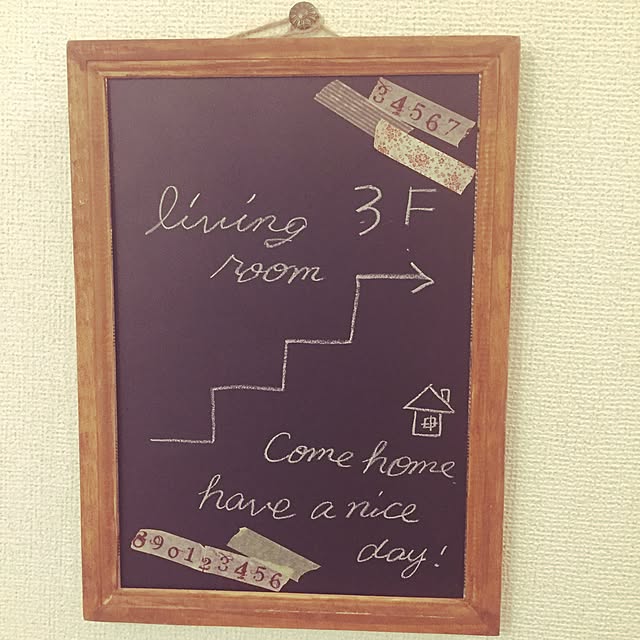 34567
living 3F
room
Come home
have a nice
day!
890123456